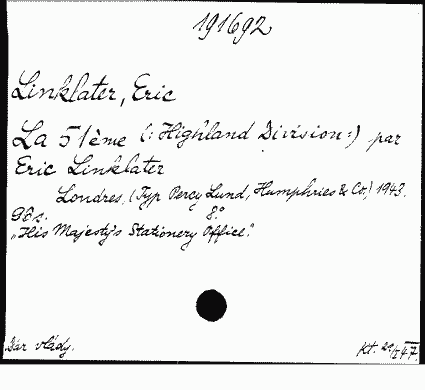 191692
Linklater, Eric
La 51ème (: Highland Division :) par
Eric Linklater
Londres, (Typ Percy Lund, Humphries & Co,) 1943.
96 s. 8°
„His Majesty's Stationery Office."
Dar vlády. Kt.